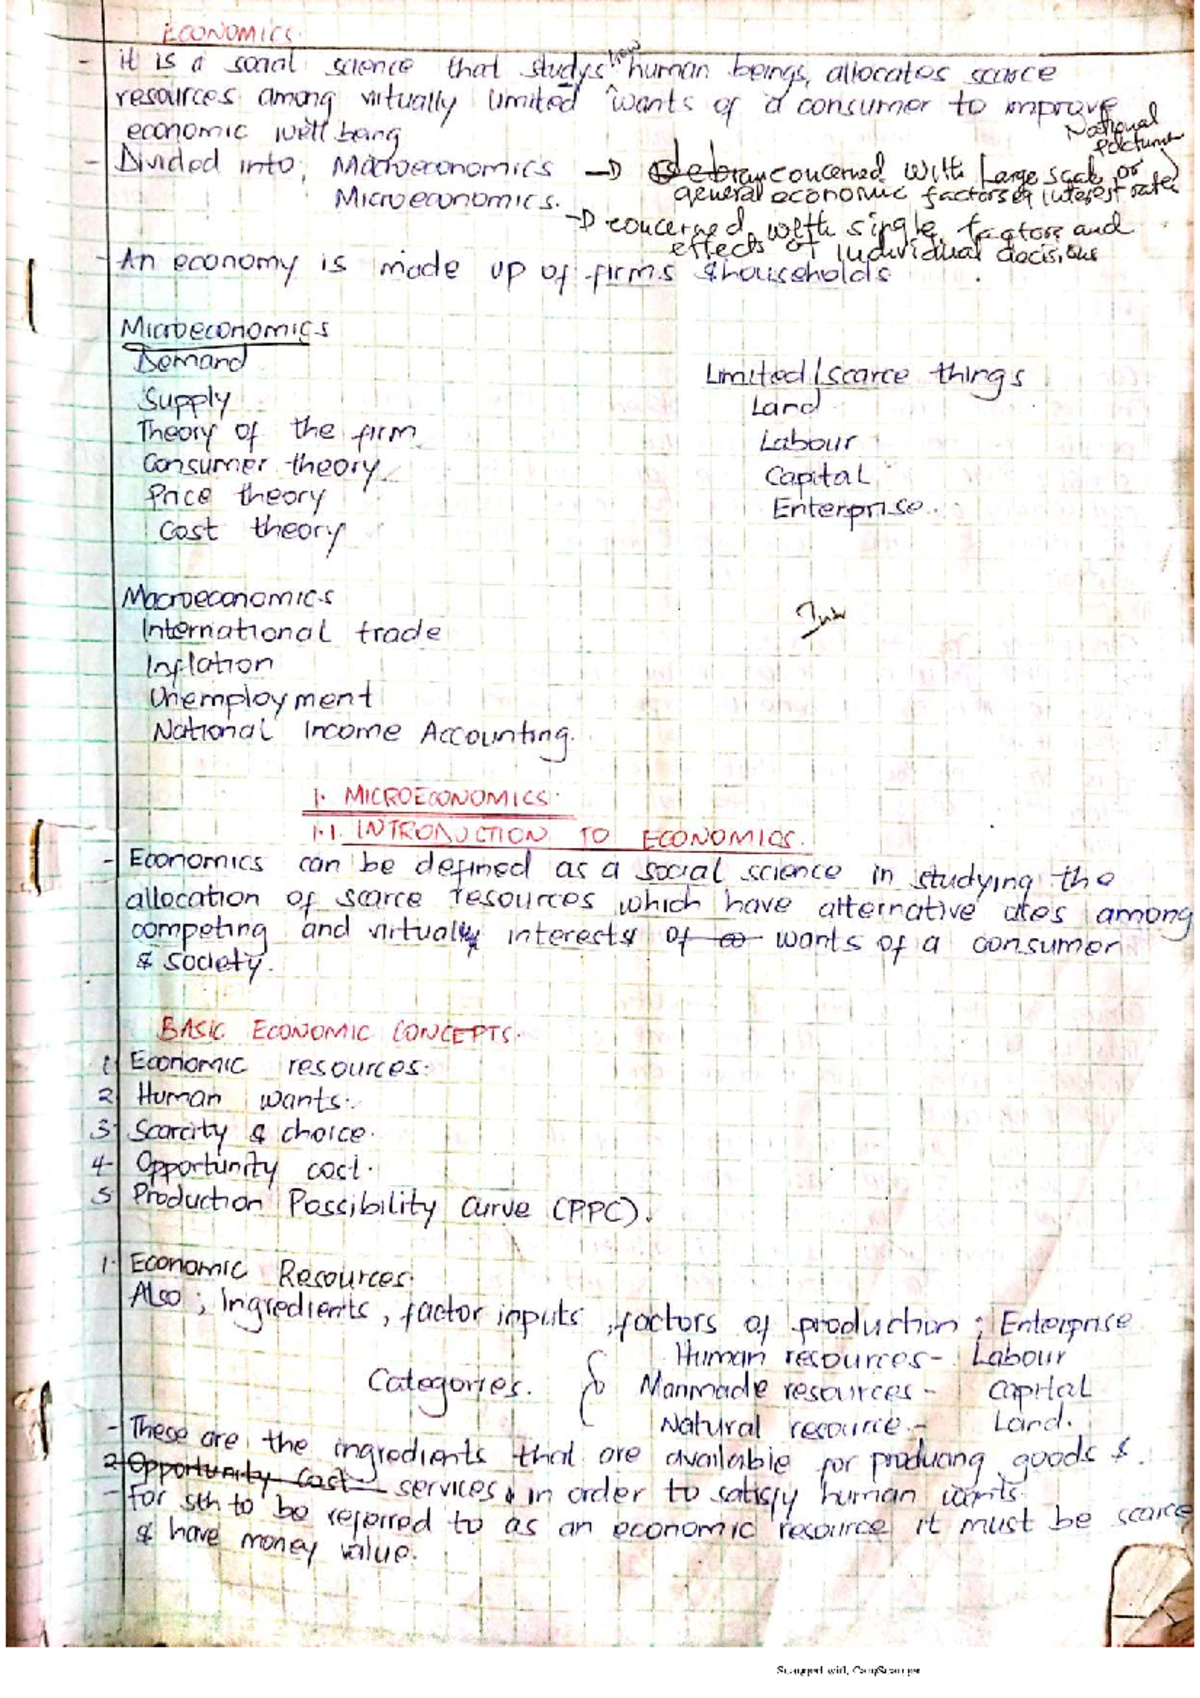 ECONOMICS.
- it is a social science that studys how human beings, allocates scarce
resources among virtually limited wants of a consumer to improve
economic well being
- Divided into; Macroeconomics → concerned with Large scale or
general economic factors eg interest rates National
Microeconomics.
→ concerned with single factors and
effects of individual decisions
- An economy is made up of firms & households
Microeconomics
Demand
Supply
Theory of the firm
Consumer theory
Price theory
Cost theory
Limited/scarce things
Land
Labour
Capital
Enterprise.
Macroeconomics
International trade
Inflation
Unemployment
National Income Accounting.
1. MICROECONOMICS.
1.1. INTRODUCTION TO ECONOMICS.
- Economics can be defined as a social science in studying the
allocation of scarce resources which have alternative uses among
competing and virtually interests of wants of a consumer
& society.
BASIC ECONOMIC CONCEPTS.
1 Economic resources.
2 Human wants.
3. Scarcity & choice.
4- Opportunity cost.
5 Production Possibility Curve (PPC).
1. Economic Resources.
Also; Ingredients, factor inputs, factors of production; Enterprise
Categories. { Human resources - Labour
Manmade resources - capital
Natural resource - Land.
- These are the ingredients that are available for producing goods &
2 Opportunity cost services in order to satisfy human wants.
- For sth to be referred to as an economic resource it must be scarce
& have money value.
Scanned with CamScanner